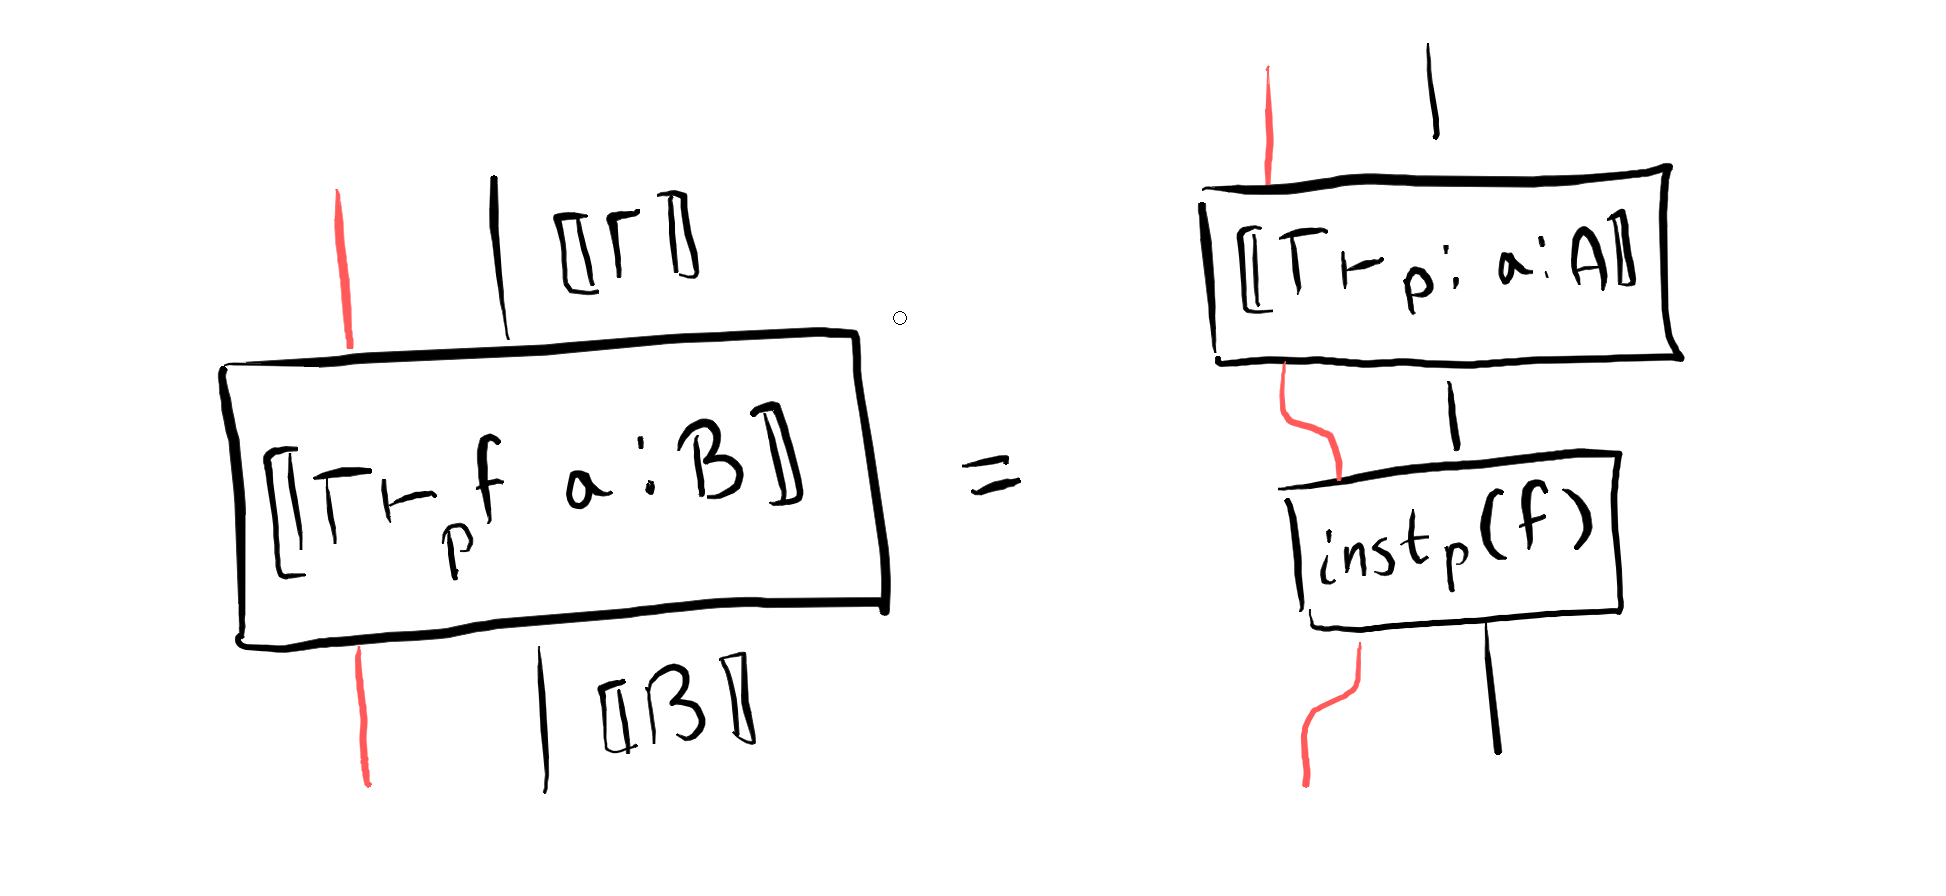 ⟦Γ⟧
⟦Γ ⊢ₚ f a : B⟧
⟦B⟧
=
⟦Γ ⊢ₚ: a : A⟧
instₚ(f)